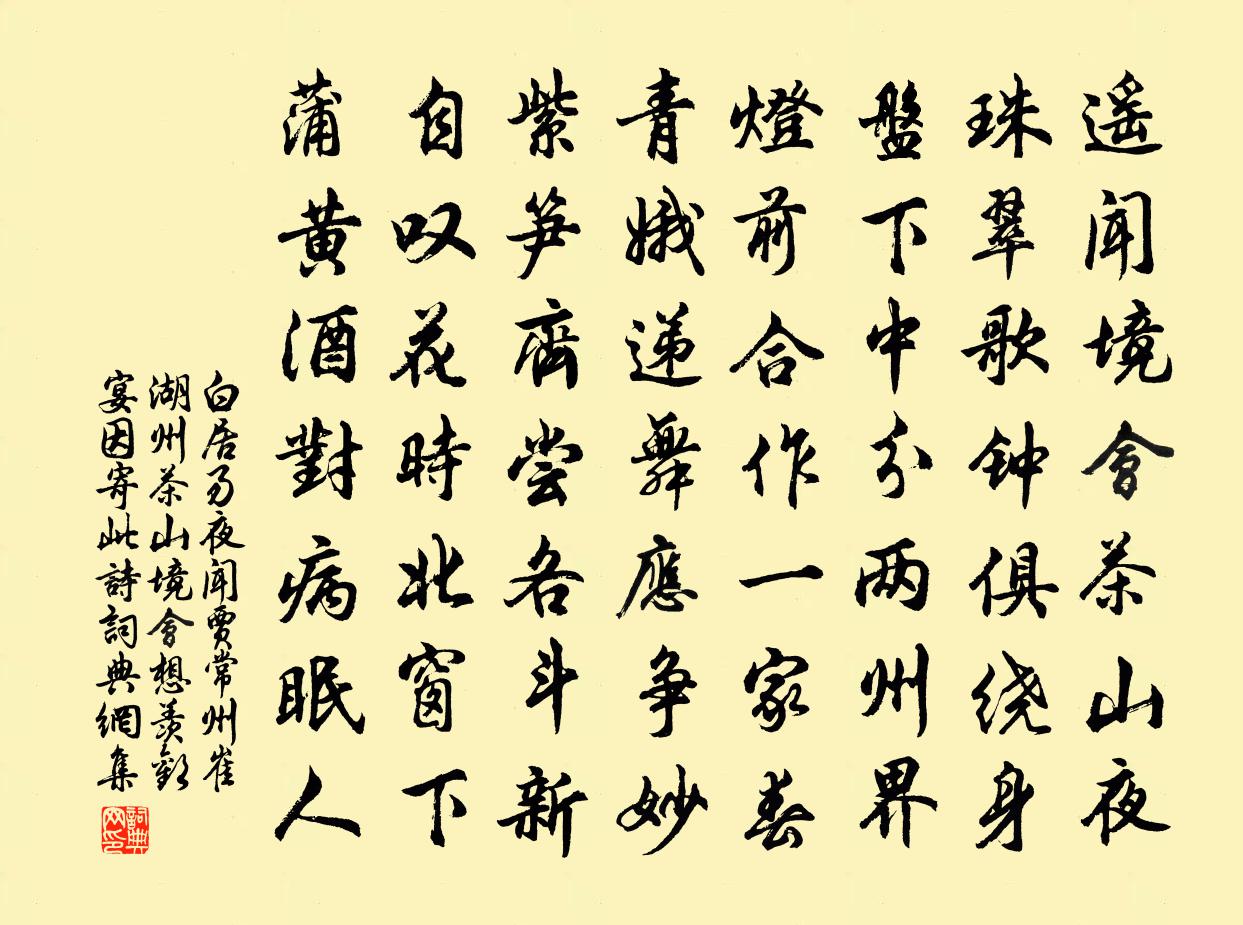 遥闻境會茶山夜
珠翠歌钟俱绕身
盤下中分两州界
燈前合作一家春
青娥递舞應争妙
紫笋齊尝各斗新
自叹花時北窗下
蒲黄酒對病眠人
白居易夜闻賈常州崔
湖州茶山境會想羡歡
宴因寄此詩詞典網集
詞典网印